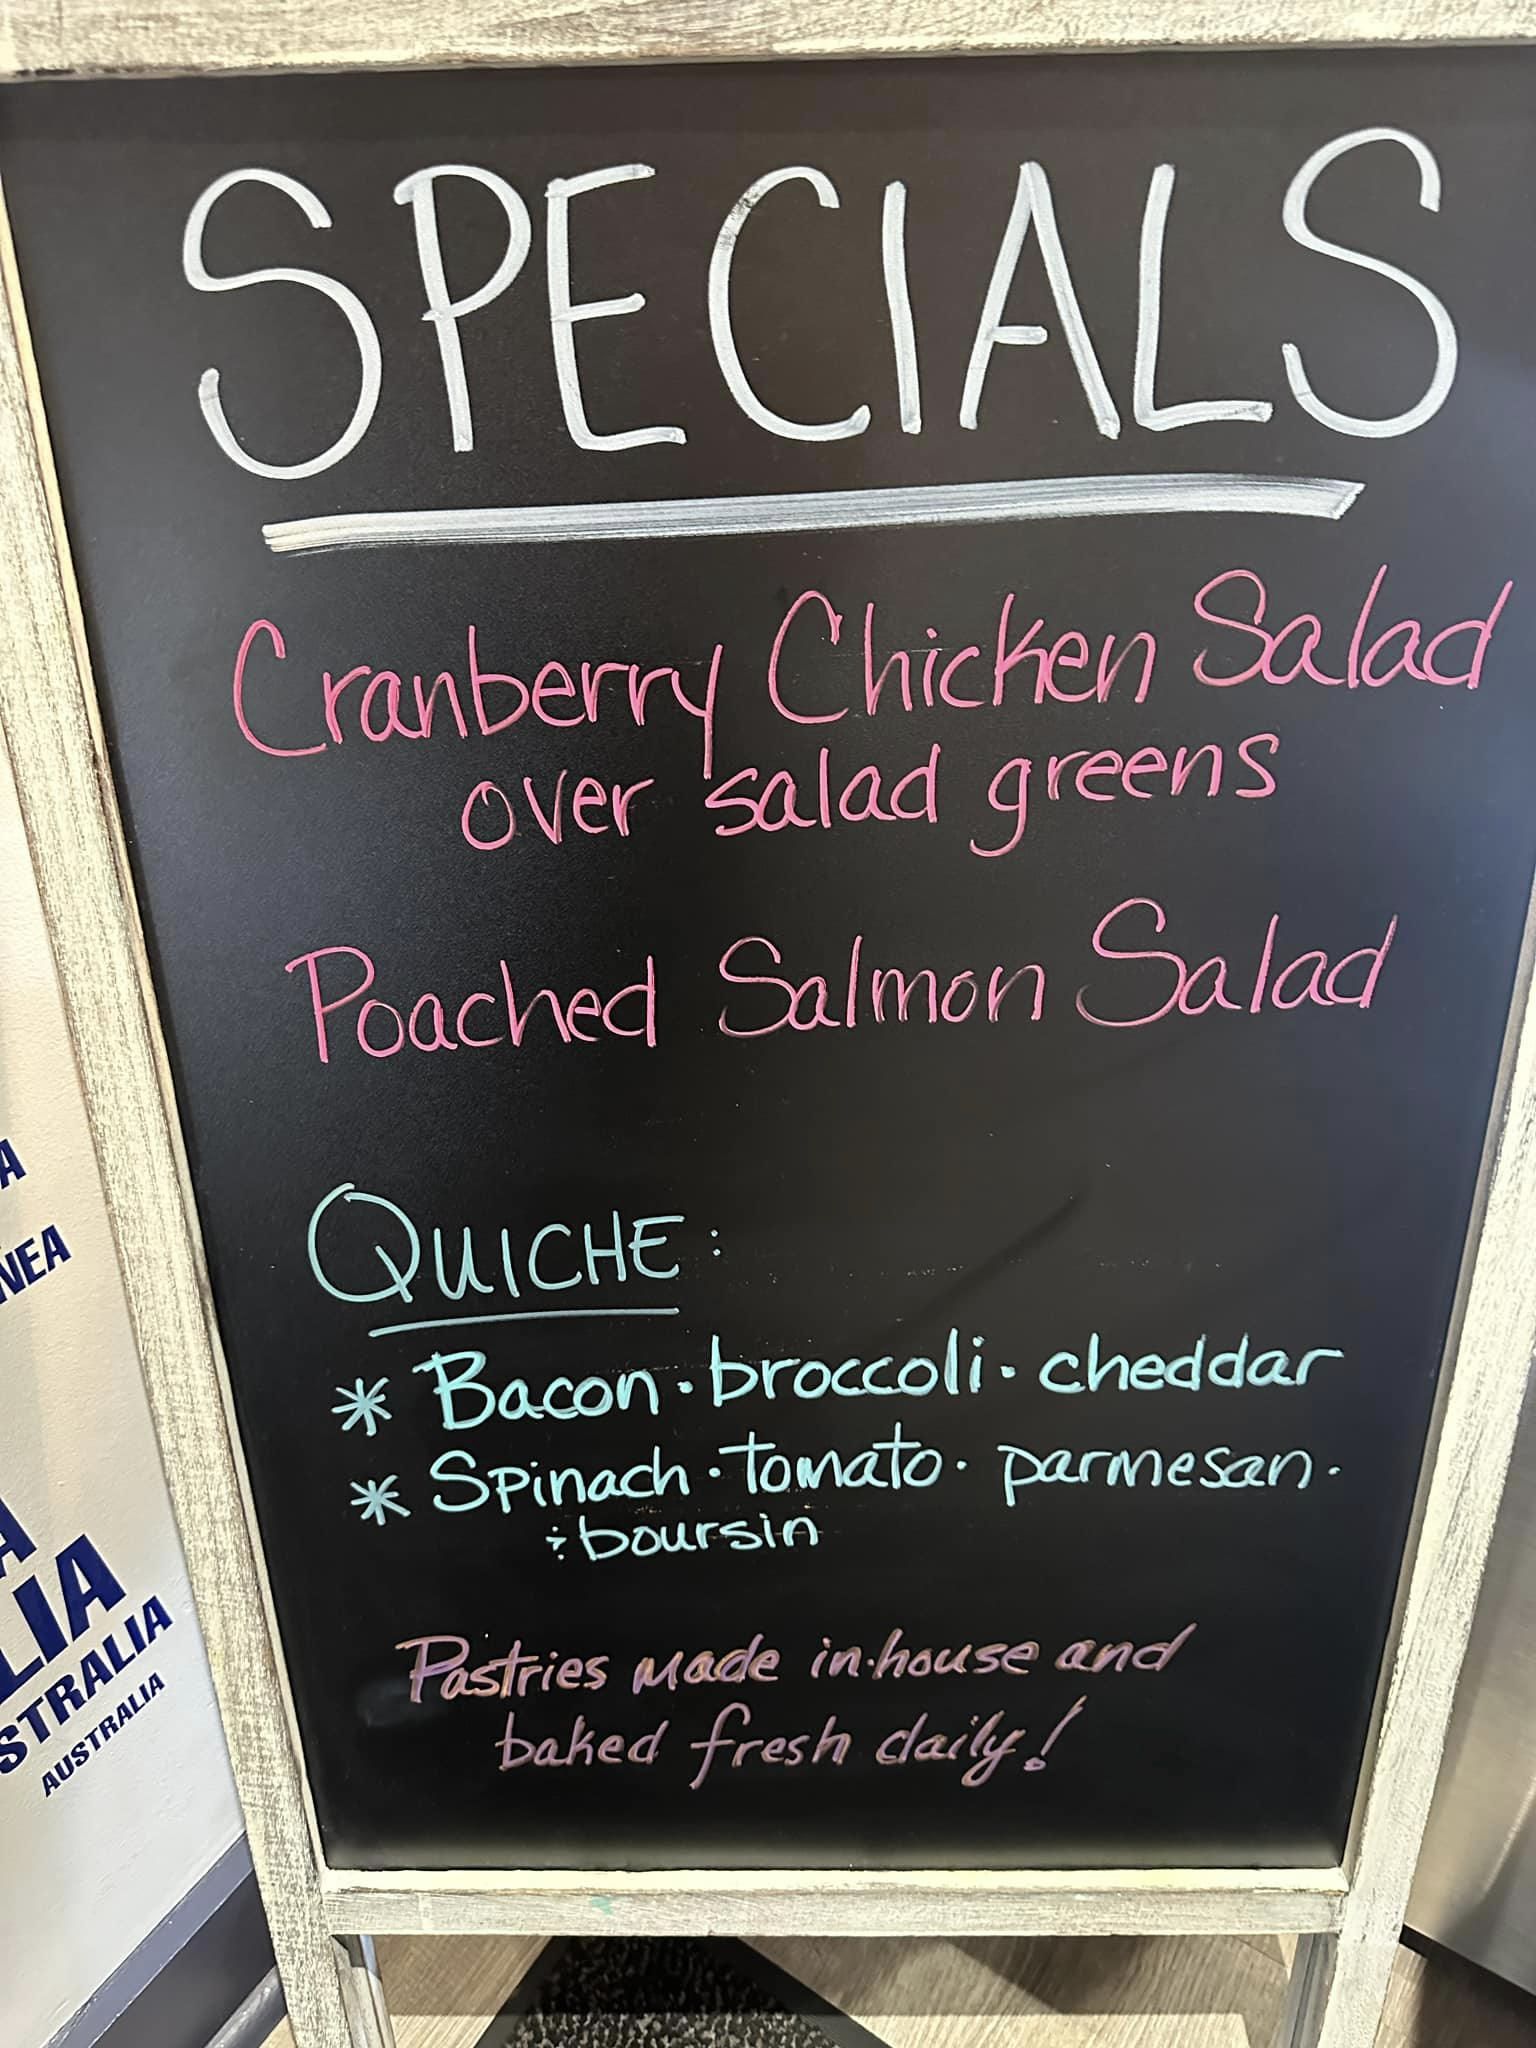 SPECIALS
Cranberry Chicken Salad
over salad greens
Poached Salmon Salad
QUICHE:
* Bacon · broccoli · cheddar
* Spinach · tomato · parmesan ·
÷ boursin
Pastries made in-house and
baked fresh daily!
AUSTRALIA